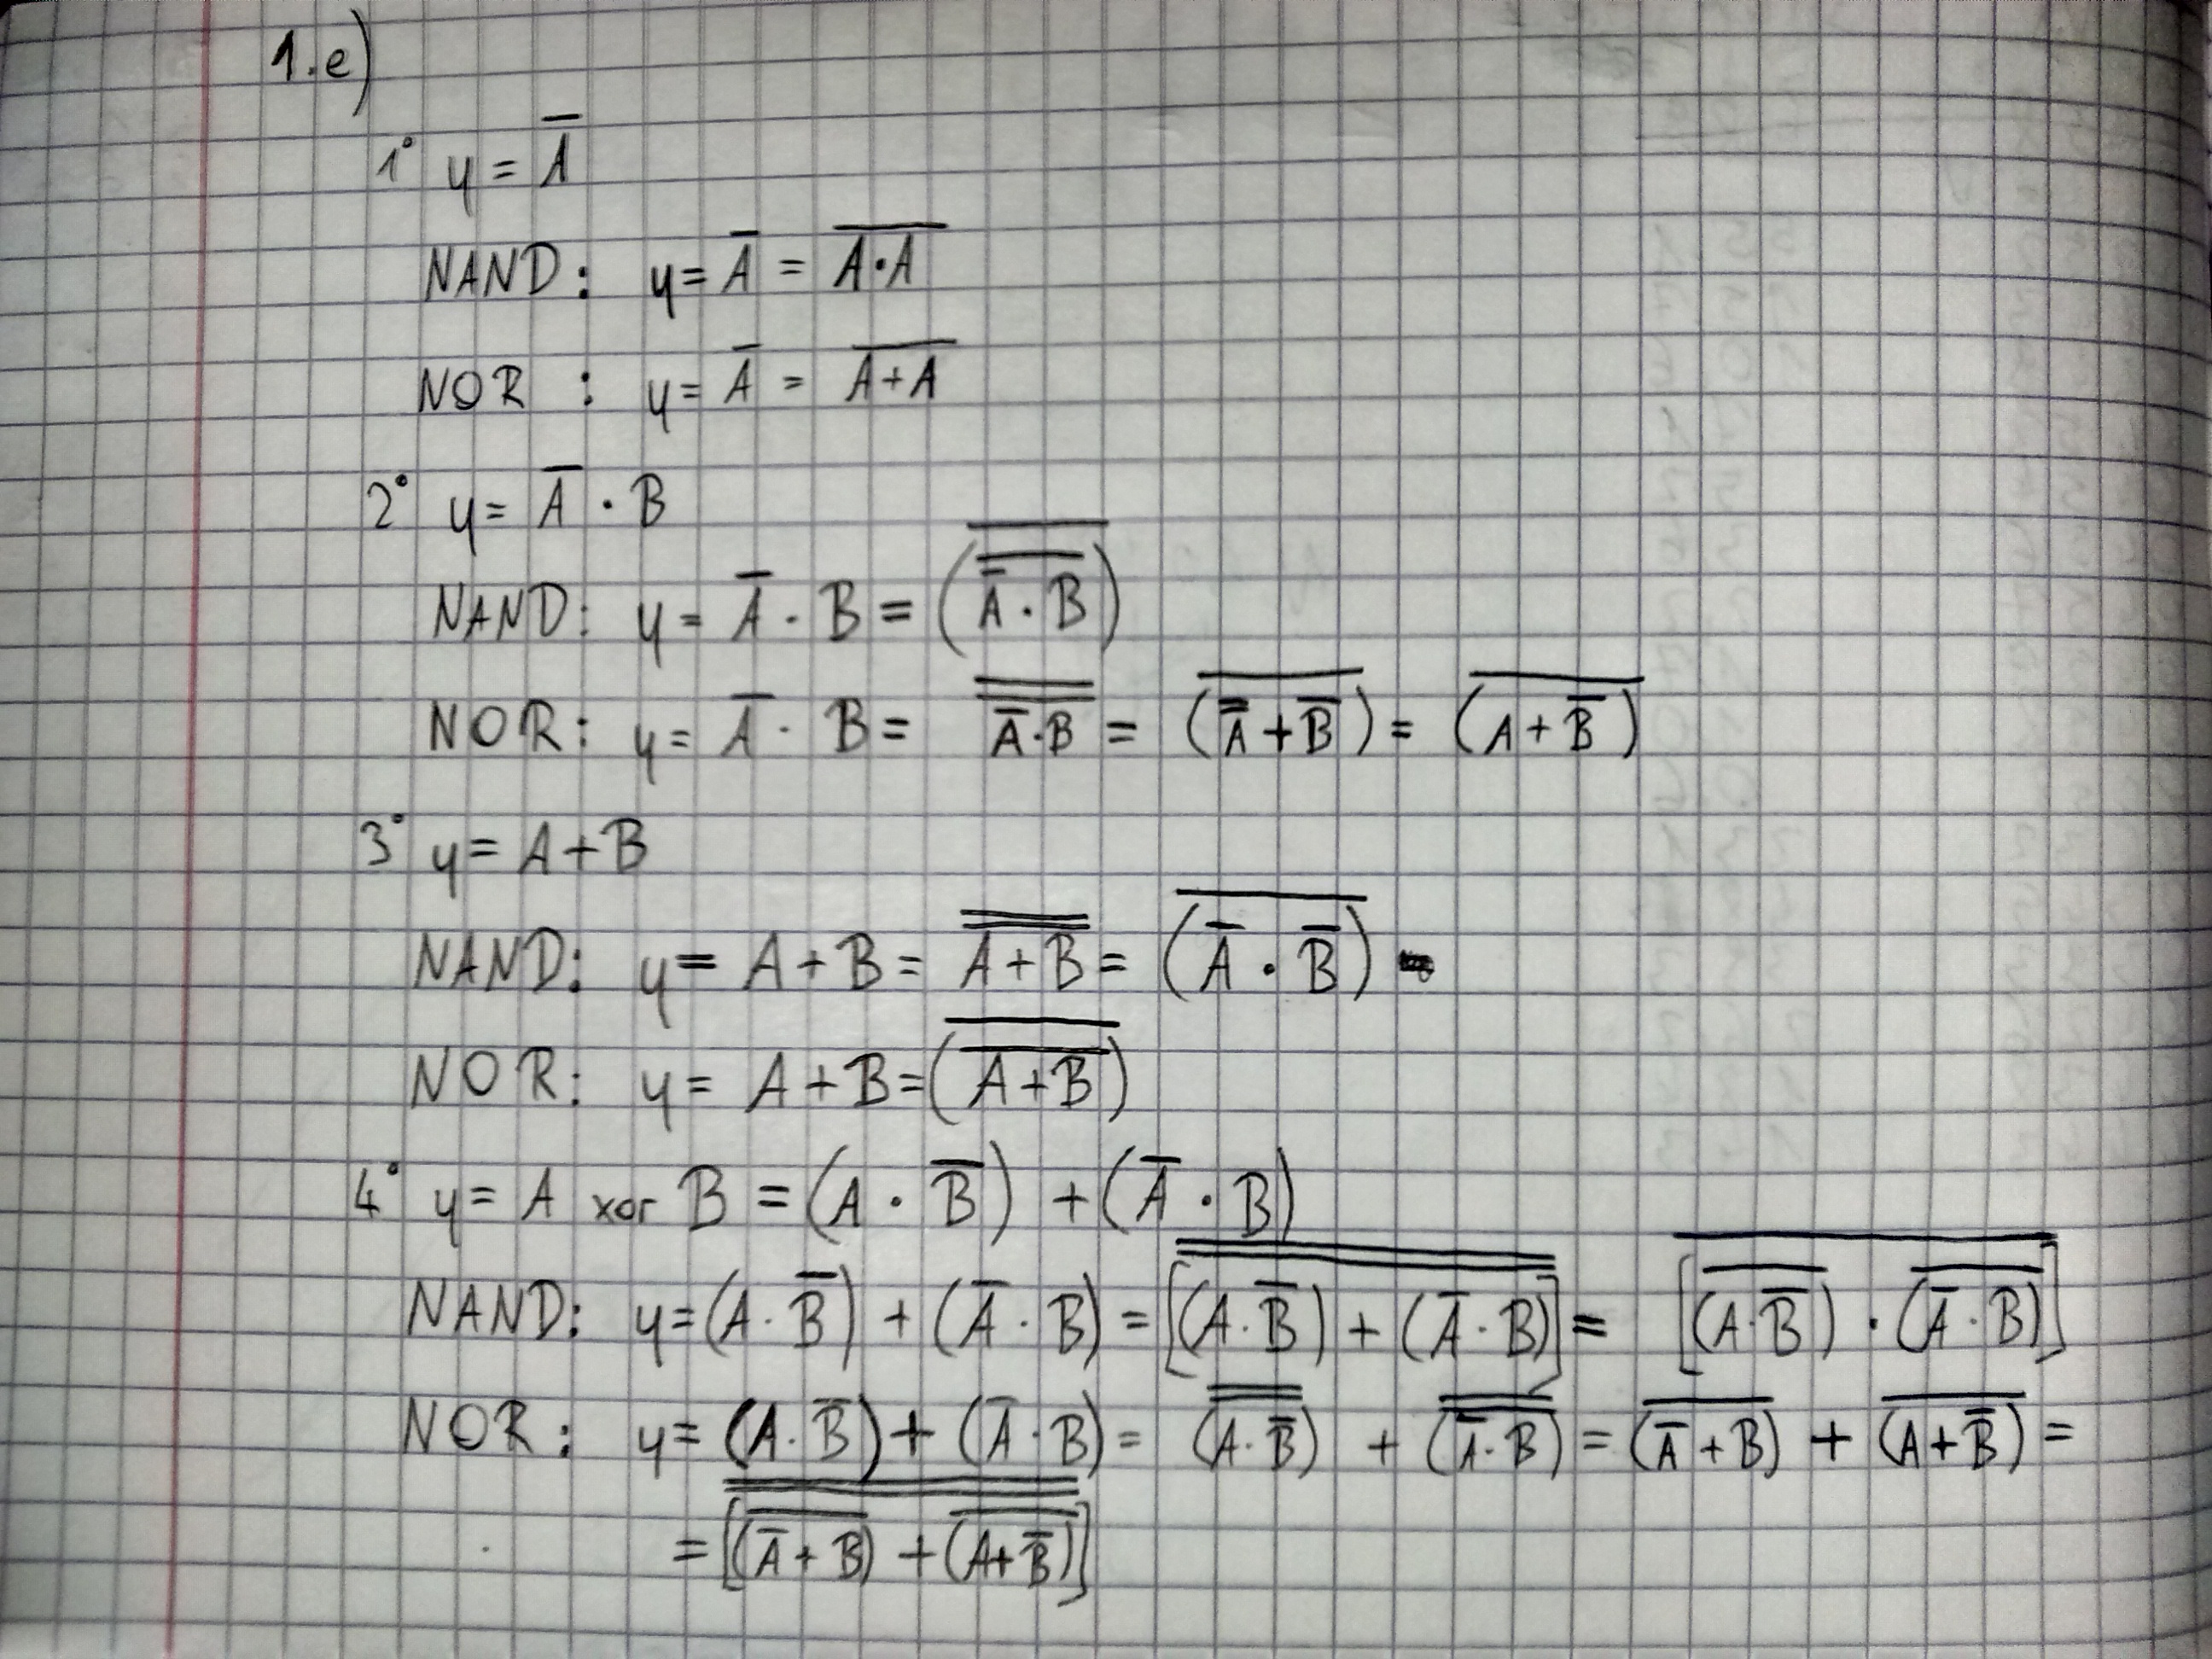 1.e)
1° y = A̅
NAND: y = A̅ = \overline{A·A}
NOR : y = A̅ = \overline{A+A}
2° y = A̅ · B
NAND: y = A̅ · B = \overline{(\overline{A̅ · B})}
NOR: y = A̅ · B = \overline{\overline{A̅·B}} = \overline{(\overline{\overline{A}} + B̅)} = \overline{(A + B̅)}
3° y = A+B
NAND: y = A+B = \overline{\overline{A+B}} = \overline{(A̅ · B̅)}
NOR: y = A+B = \overline{(\overline{A+B})}
4° y = A xor B = (A · B̅) + (A̅ · B)
NAND: y = (A · B̅) + (A̅ · B) = \overline{\overline{[(A·B̅) + (A̅ · B)]}} = \overline{[\overline{(A·B̅)} · \overline{(A̅ · B)}]}
NOR: y = (A·B̅) + (A̅ · B) = \overline{\overline{(A·B̅)}} + \overline{\overline{(A̅·B)}} = \overline{(A̅ + B)} + \overline{(A + B̅)} =
= \overline{\overline{[\overline{(A̅ + B)} + \overline{(A+B̅)}]}}